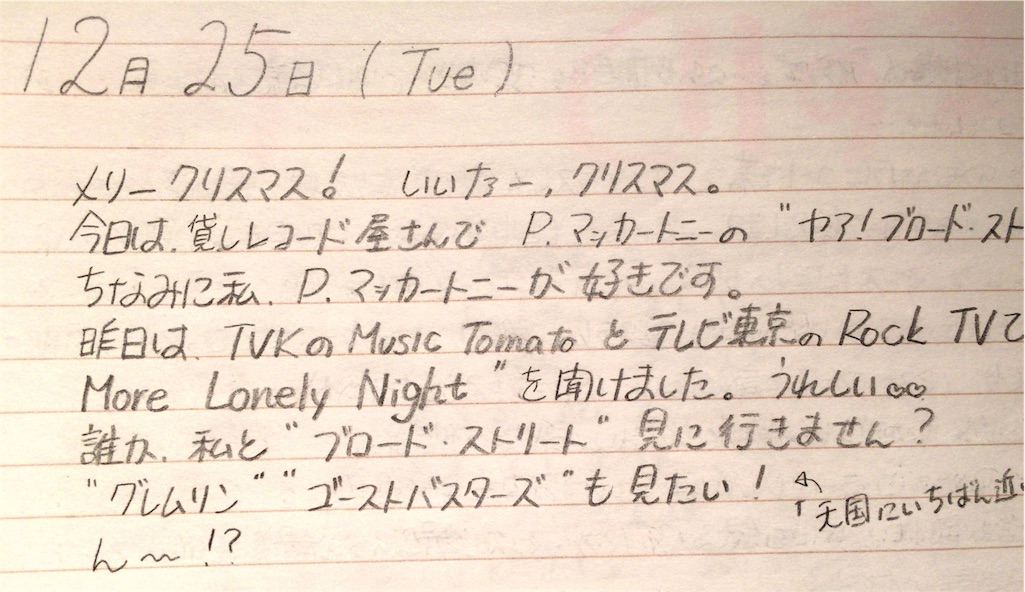 12月25日(Tue)
メリークリスマス! いいなー,クリスマス。
今日は、貸しレコード屋さんで P.マッカートニーの "ヤア!ブロード・スト
ちなみに私、P.マッカートニーが好きです。
昨日は、TVKのMusic Tomatoとテレビ東京のRock TVで
More Lonely Night"を聞けました。うれしい♡♡
誰か、私と"ブロード・ストリート"見に行きません?
"グレムリン""ゴーストバスターズ"も見たい!
↑天国にいちばん近い
ん〜!?